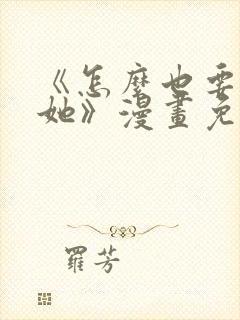 《怎麼也要
她》漫畫免
羅芳